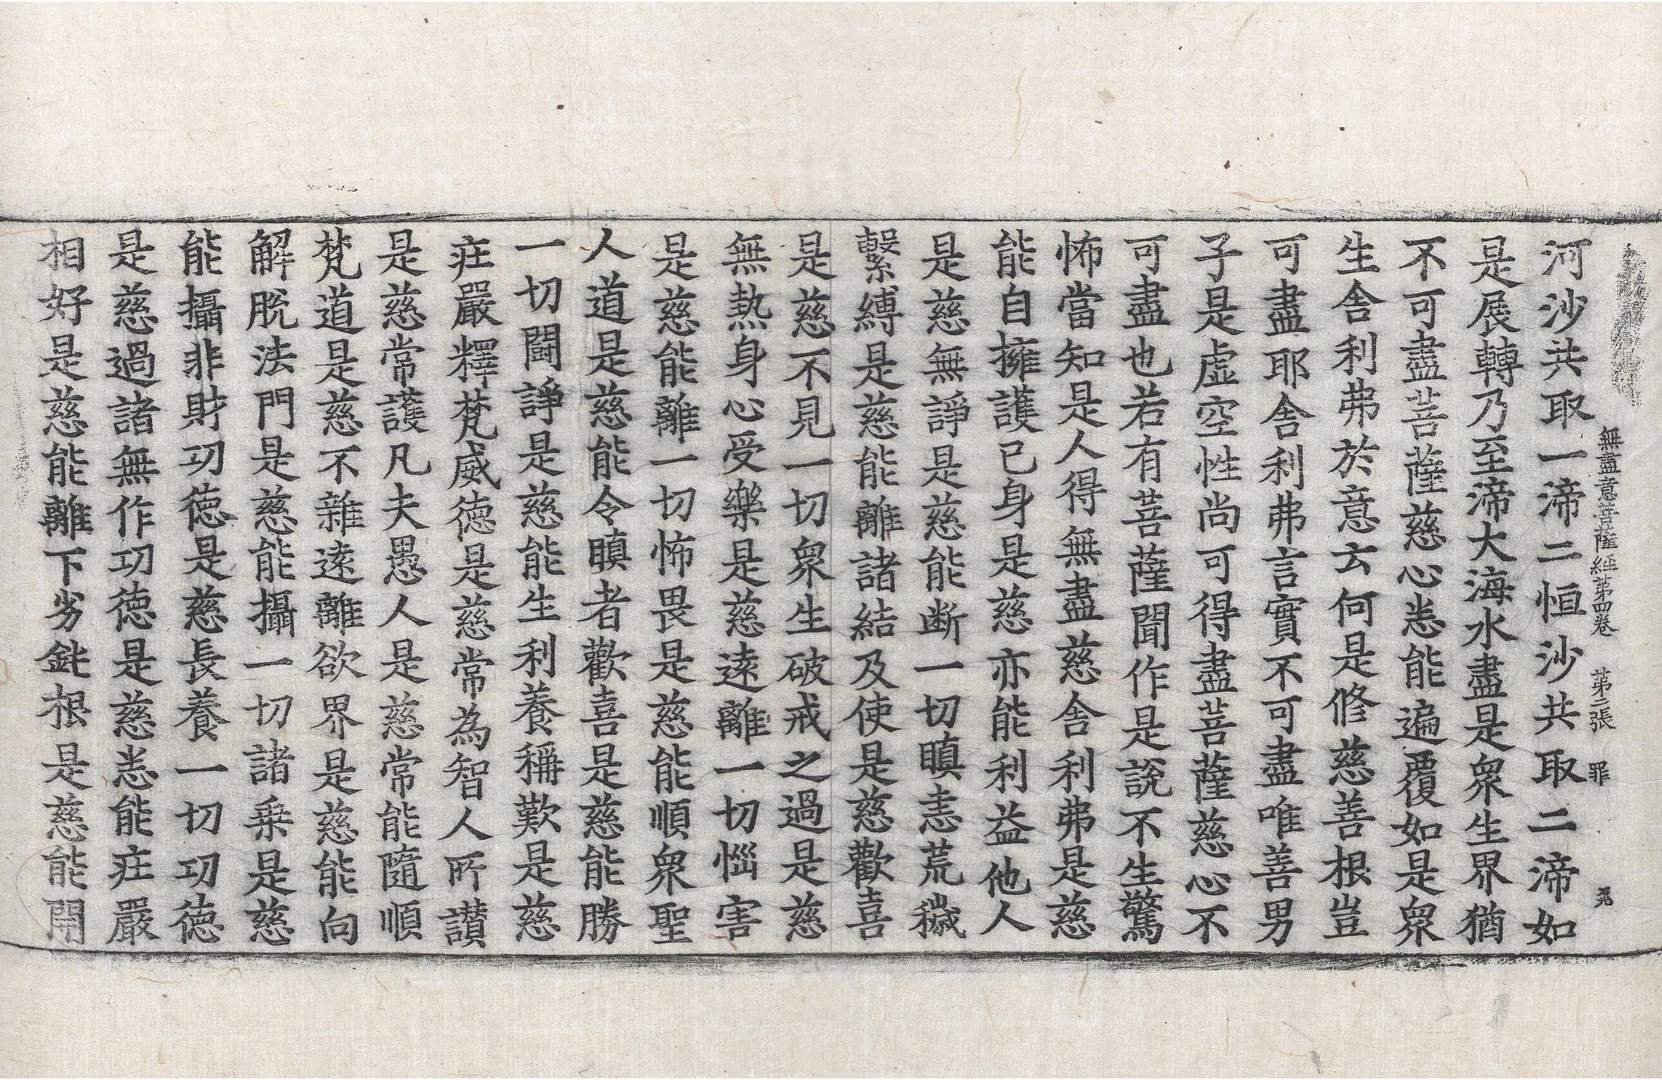 無盡意菩薩経第四卷 第三張 罪
河沙共取一渧二恒沙共取二渧如
是展轉乃至渧大海水盡是衆生界猶
不可盡菩薩慈心悉能遍覆如是衆
生舍利弗於意云何是修慈善根豈
可盡耶舍利弗言實不可盡唯善男
子是虚空性尚可得盡菩薩慈心不
可盡也若有菩薩聞作是說不生驚
怖當知是人得無盡慈舍利弗是慈
能自擁護已身是慈亦能利益他人
是慈無諍是慈能断一切瞋恚荒穢
繫縛是慈能離諸結及使是慈歡喜
是慈不見一切衆生破戒之過是慈
無熱身心受樂是慈遠離一切惱害
是慈能離一切怖畏是慈能順衆聖
人道是慈能令瞋者歡喜是慈能勝
一切鬪諍是慈能生利養稱歎是慈
庄嚴釋梵威徳是慈常為智人所讃
是慈常護凡夫愚人是慈常能隨順
梵道是慈不雜遠離欲界是慈能向
解脫法門是慈能攝一切諸乗是慈
能攝非財功徳是慈長養一切功徳
是慈過諸無作功徳是慈悉能庄嚴
相好是慈能離下劣鈍根是慈能開